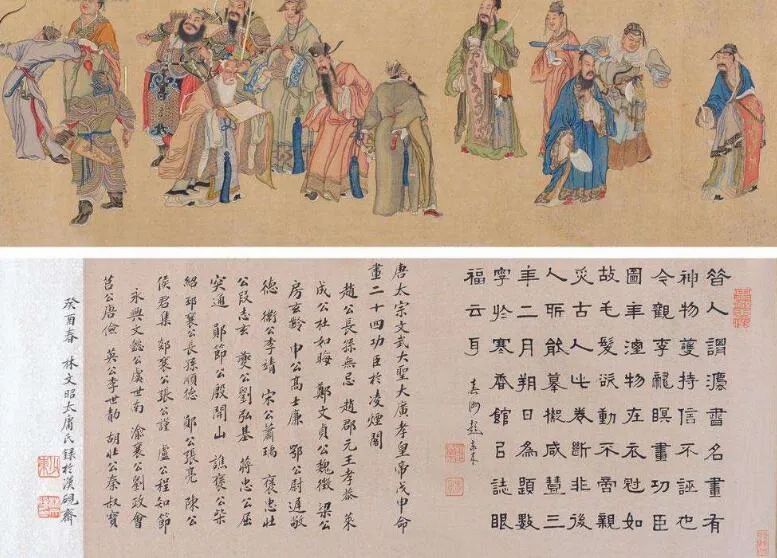 昔人謂灋書名畫有
神物護持信不誣也
今觀李龍眠畫功臣
圖年湮物在衣冠如
故毛髮欲動不啻親
炙古人此卷斷非後
人所能摹擬咸豐三
年二月朔日為題數
字於寒香館㠯誌眼
福云耳
唐太宗文武大聖大廣孝皇帝戊申命
畫二十四功臣於凌煙閣
趙公長孫無忌 趙郡元王孝恭 萊
成公杜如晦 鄭文貞公魏徵 梁公
房玄齡 申公高士廉 鄂公尉遲敬
德 衛公李靖 宋公蕭瑀 褒忠壯
公段志玄 夔公劉弘基 蔣忠公屈
突通 鄖節公殷開山 譙襄公柴
紹 邳襄公長孫順德 鄭公張亮 陳公
侯君集 郯襄公張公謹 盧公程知節
永興文懿公虞世南 渝襄公劉政會
莒公唐儉 英公李世勣 胡壯公秦叔寶
癸酉春 林文昭太庸氏錄於漢硯齋